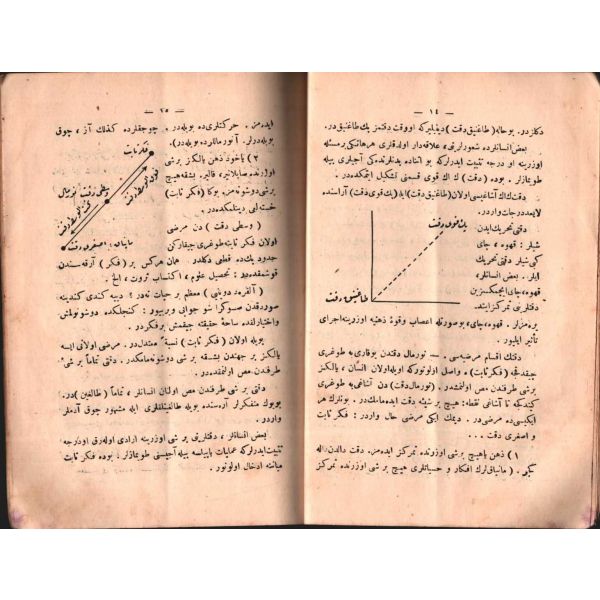 — ١٤ —
دكلدر. بو حاله (طاغنيق دقت) دينليركه او وقت دقتمز پك طاغنيق در.
بعض انسانلرده شعورلرينى، علاقه‌دار اولدقلرى هر هانكى بر مسئله
اوزرينه او درجه تثبيت ايدرلركه بو آنماده بدنلرنده‌كى آجيلرى بيله
طويمازلر. بوده (دقت) ك اك قوى قسمنى تشكيل ايتمكده‌در.
دقتك اك آشاغيسى اولان (طاغنيق دقت) ايله (پك قوى دقت) آراسنده
لايعد درجات واردر.
دقتى تحريك ايدن
شيلر : قهوه، چاى
كبى شيلر دقتى تحريك
ايلر. بعض انسانلر،
قهوه، چاى ايچمكسزين
دقتلرينى تمركز ايتديـ
ره‌مزلر. قهوه، چاى، بوصورتله اعصاب وقوۀ ذهنيه اوزرينه اجراى
تأثير ايليور.
پك قوى دقت
طاغنيق دقت
دقتك اقسام مرضيه‌سى. — نورمال دقتدن يوقارى يه طوغرى
چيقدقجه (فكر ثابت) ه واصل اولونوركه اويله اولان انسان، يالكز
برشى طرفندن مص اولنمشدر. (نورمال دقت) دن آشاغى يه طوغرى
كيتدكجه تا آشاغى نقطه : هيچ بر شيئه دقت ايده‌مامك‌در. بونلرك هر
ايكيسى‌ده مرضى‌در. ديمك ايكى مرضى حال واردر : فكر ثابت
و اصغرى دقت . . .
١ ) ذهن ياهيچ برشى اوزرنده تمركز ايده‌مز. دقت دالدن داله
كزر. (مانياق) لرك افكار و حسياتلرى هيچ بر شى اوزرنده تمركز
— ١٥ —
ايده‌مز. حركتلرى‌ده بويله‌در. چوجقلرده كذلك آز ، چوق
بويله‌درلر. آنورماللرده بويله‌در).
٢ ) ياخود ذهن يالكز برشى
اوزرنده صاپلانير، قالير. بشقه هيچ
برشى دوشونه‌مز. بوكا (فكر ثابت)
خسته‌لغى دينلمكده‌در.
فكر ثابت
وسطى دقت نورمال
اصغرى دقت
(وسطى دقت) دن مرضى
اولان فكر ثابته طوغرى چيقاركن
حدود پك ده قطعى دكلدر. هان هركس بر (فكر) آرقه‌سندن
قوشمقده‌در : تحصيل علوم ، اكتساب ثروت ، الخ .
( آلفره‌د دوينيى ) معظم بر حيات نه‌در؟ ديه كندى كندينه
صوردقدن صوكرا شو جوابى ويرييور : كنجلكده دوشونولش
واختيارلقده ساحۀ حقيقته چيقمش برفكردر.
بويله اولان (فكر ثابت) نسبةً معتدل‌در. مرضى اولانى ايسه
يالكز بر جهتدن بشقه بر شى دوشونه‌مامكدر. دقتى تماماً بر شى
طرفندن مص اولنمشدر.
دقتى برشى طرفندن مص اولنان انسانلر ، تماماً (طالغين) در.
بويوك متفكرلر آره‌سنده بويله طالغينلقلرى ايله مشهور چوق آدملر
واردر.
بعض انسانلر، دقتلرينى بر شى اوزرينه ارادى اوله‌رق اودرجه
تثبيت ايدرلركه عمليات ياپيلسه بيله آجيسنى طويمازلر . بوده فكر ثابت
مياننه ادخال اولونور.